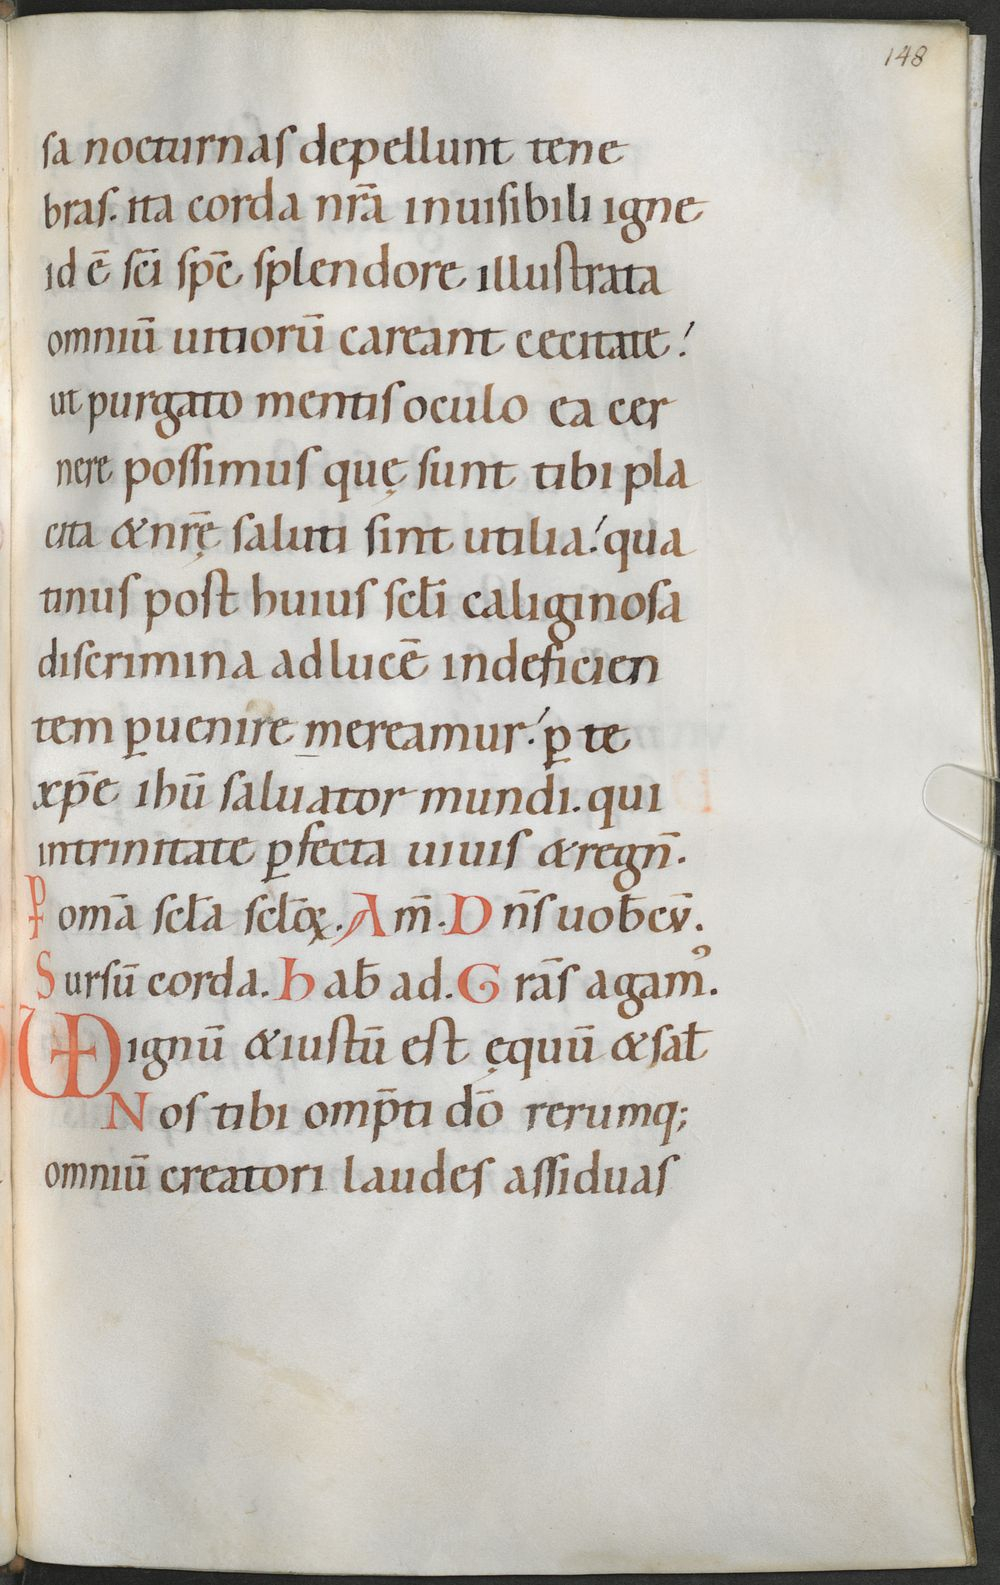 148
sa nocturnas depellunt tene
bras. ita corda nr̄a inuisibili igne
id ē sc̄i sp̄c splendore illustrata
omniū uitiorū careant cecitate!
ut purgato mentis oculo ea cer
nere possimus quę sunt tibi pla
cita & nr̄ę saluti sint utilia! qua
tinus post huius sc̄li caliginosa
discrimina ad lucē indeficien
tem ꝑuenire mereamur! ꝑ te
xp̄e ihū saluator mundi. qui
in trinitate ꝑfecta uiuis & regn̄.
P omā sc̄la sc̄lōꝝ. Am̄. D n̄s uob̄cū.
Sursū corda. hab̄ ad. Grās agamꝰ.
VD ignū & iustū est ęquū & sal̄
Nos tibi omp̄ti dō rerumq;
omniū creatori laudes assiduas